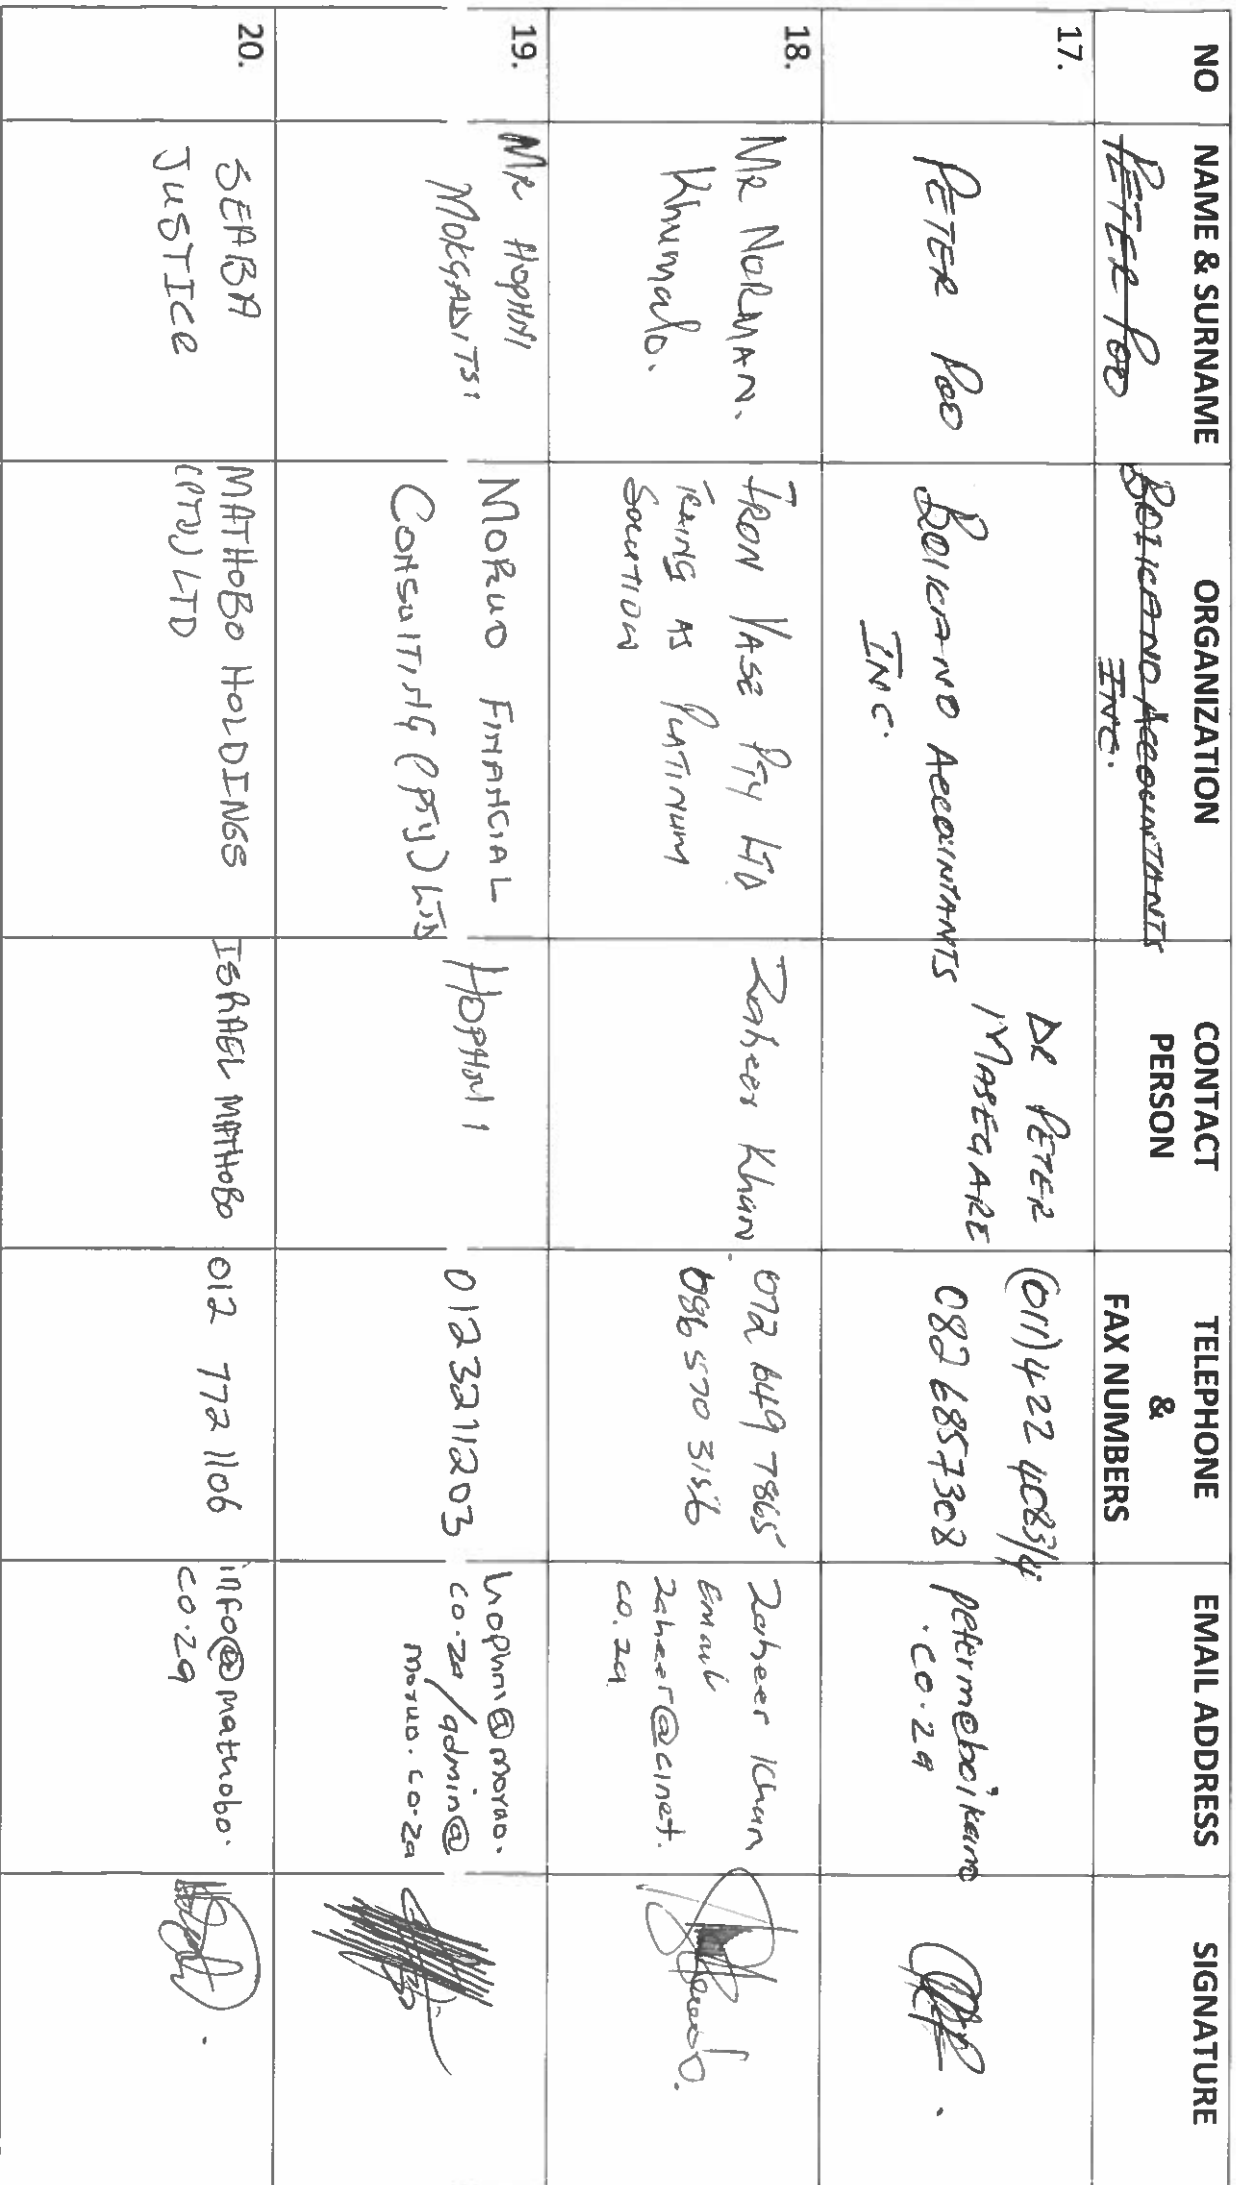 NO NAME & SURNAME ORGANIZATION CONTACT PERSON TELEPHONE & FAX NUMBERS EMAIL ADDRESS SIGNATURE
PETER POO
BOIKANO ACCOUNTANTS
INC.
17.
PETER POO
BOIKANO ACCOUNTANTS
INC.
DR PETER
MASEGARE
(011) 422 4083/4
082 6857308
peterm@boikano
.co.za
18.
MR NORMAN.
Khumalo.
IRON VASE PTY LTD
TRAING AS PLATINUM
SOLUTION
Zaheer Khan
072 649 7865
086 570 3156
Zaheer Khan
Email
zaheer@cinet.
co.za
19.
MR HOPHNI
MOKGADITSI
MORUO FINANCIAL
CONSULTING (PTY) LTD
HOPHNI
0123211203
hophni@moruo.
co.za/admin@
moruo.co.za
20.
SEABA
JUSTICE
MATHOBO HOLDINGS
(PTY) LTD
ISRAEL MATHOBO
012 772 1106
info@mathobo.
co.za